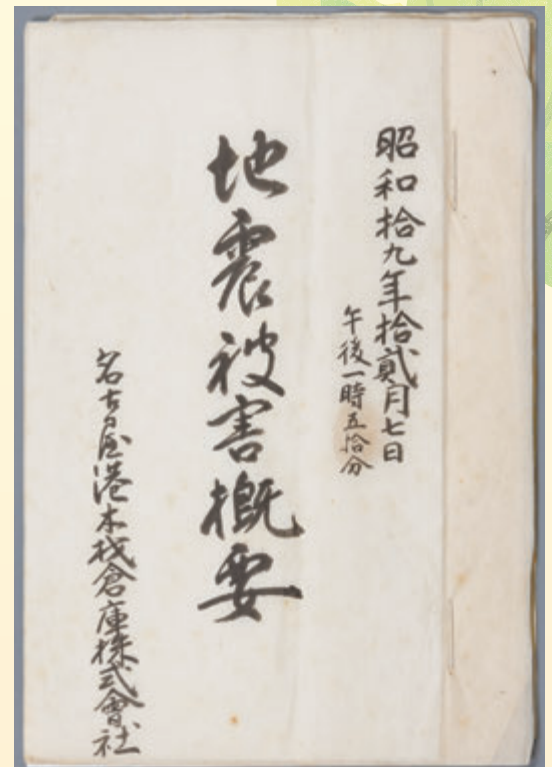 昭和拾九年拾貳月七日
午後一時五拾分
地震被害概要
名古屋港木材倉庫株式會社